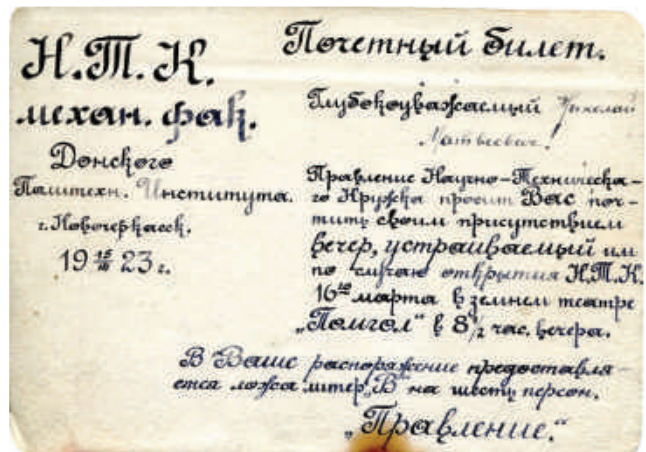 Н.Т.К.
механ. фак.
Донского
Политехн. Института.
г. Новочеркасск.
19 15/III 23 г.
Почетный билет.
Глубокоуважаемый Николай
Матвеевич!
Правление Научно-Техническа-
го Кружка просит Вас поч-
тить своим присутствием
вечер, устраиваемый им
по случаю открытия Н.Т.К.
16го марта в зимнем театре
„Помгол" в 8 1/2 час. вечера.
В Ваше распоряжение предоставля-
ется ложа литер „В" на шесть персон.
„Правление."